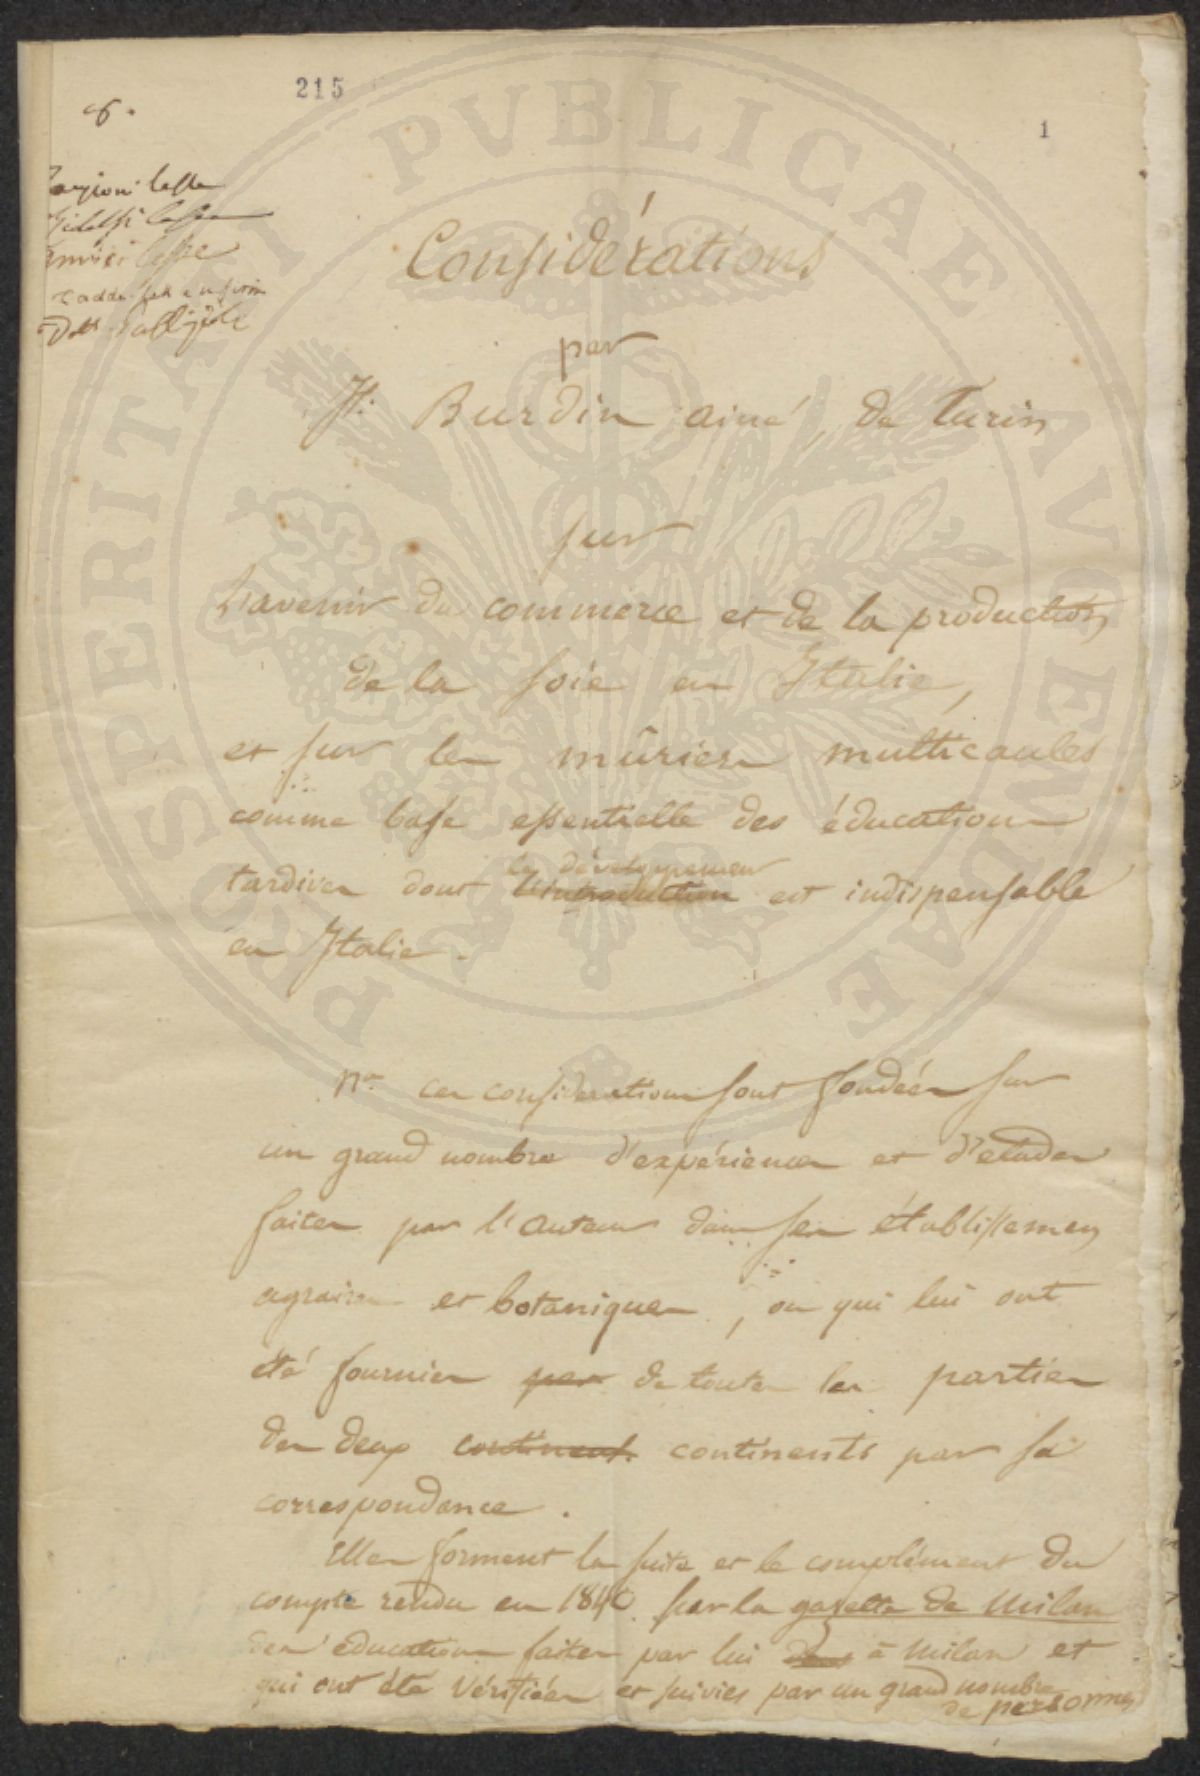 215
1
6.
lesse
Considérations
par
Burdin ainé, de Turin
sur
L'avenir du commerce et de la production
de la soie en Italie,
et sur les mûriers multicaules
comme base essentielle des éducations
le développement
tardives dont l'introduction est indispensable
en Italie.
Na ces considerations sont fondées sur
un grand nombre d'expériences et d'etudes
faites par l'auteur dans ses établissemens
agraires et botaniques, ou qui lui ont
été fournies par de toutes les parties
des deux continens continents par sa
correspondance.
Elles forment la suite et le complément du
compte rendu en 1840 par la gazette de Milan
des éducations faites par lui à Milan et
qui ont été Vérifiées et suivies par un grand nombre
de personnes
PROSPERITATI PVBLICAE AVGENDAE